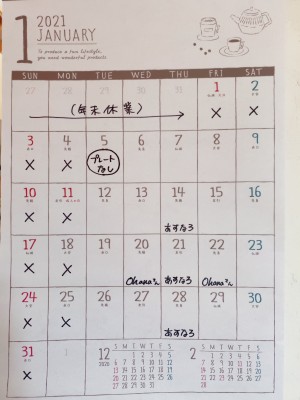 1
2021
JANUARY
To produce a fine lifestyle,
you need wonderful products.
SUN MON TUE WED THU FRI SAT
27 28 29 30 31 1 2
(年末休業)
× ×
3 4 5 6 7 8 9
× × プレート
なし
10 11 12 13 14 15 16
× × あすなろ
17 18 19 20 21 22 23
× × Ohanaさん あすなろ Ohanaさん
24 25 26 27 28 29 30
× × あすなろ
31 1
×
12
2020
S M T W T F S
1 2 3 4 5
6 7 8 9 10 11 12
13 14 15 16 17 18 19
20 21 22 23 24 25 26
27 28 29 30 31
2
S M T W T F S
1 2 3 4 5 6
7 8 9 10 11 12 13
14 15 16 17 18 19 20
21 22 23 24 25 26 27
28